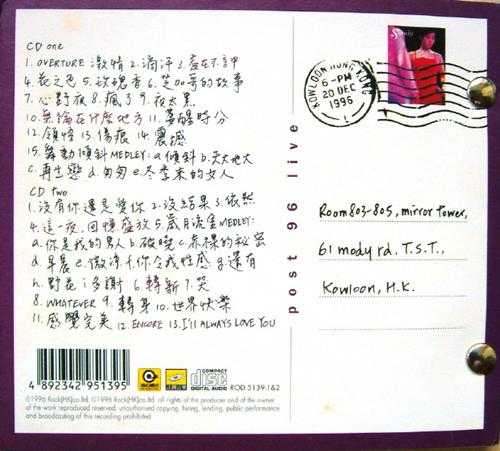 CD one
1. OVERTURE 激情 2. 滴汗 3. 盡在不言中
4. 花之色 5. 玫瑰香 6. 笑OO哥的故事
7. 心野放 8. 瘋了 9. 夜太黑
10. 無論在什麼地方 11. 薑醋時份
12. 領情 13. 傷痕 14. 震撼
15. 舞動傾斜MEDLEY: a. 傾斜 b. 天大地大
c. 再生戀 d. 匆匆 e. 冬季來的女人
CD two
1. 沒有你還是愛你 2. 沒結果 3. 依然
4. 這一夜,回憶盛放 5. 歲月流金MEDLEY:
a. 你是我的男人 b. 破曉 c. 蘋果的秘密
d. 早晨 e. 微涼 f. 你令我性感 g. 還有
h. 野花 i. 多謝 6. 轉新 7. 笑
8. WHATEVER 9. 轉身 10. 世界快樂
11. 感覺完美 12. ENCORE 13. I'll ALWAYS LOVE YOU
post 96 live
Sandy
KOWLOON HONG KONG
6-PM
20 DEC
1996
1
Room 803-805, mirror tower,
61 mody rd. T.S.T.,
Kowloon, H.K.
4 892342 951395
COMPACT
disc
DIGITAL AUDIO
ROD 5139-1&2
©1996 Rock(HK)co.ltd. ℗1996 Rock(HK)co.ltd. all rights of the producer and of the owner
of the work reproduced reserved. unauthorised copying, hiring, lending, public performance
and broadcasting of this recording prohibited.